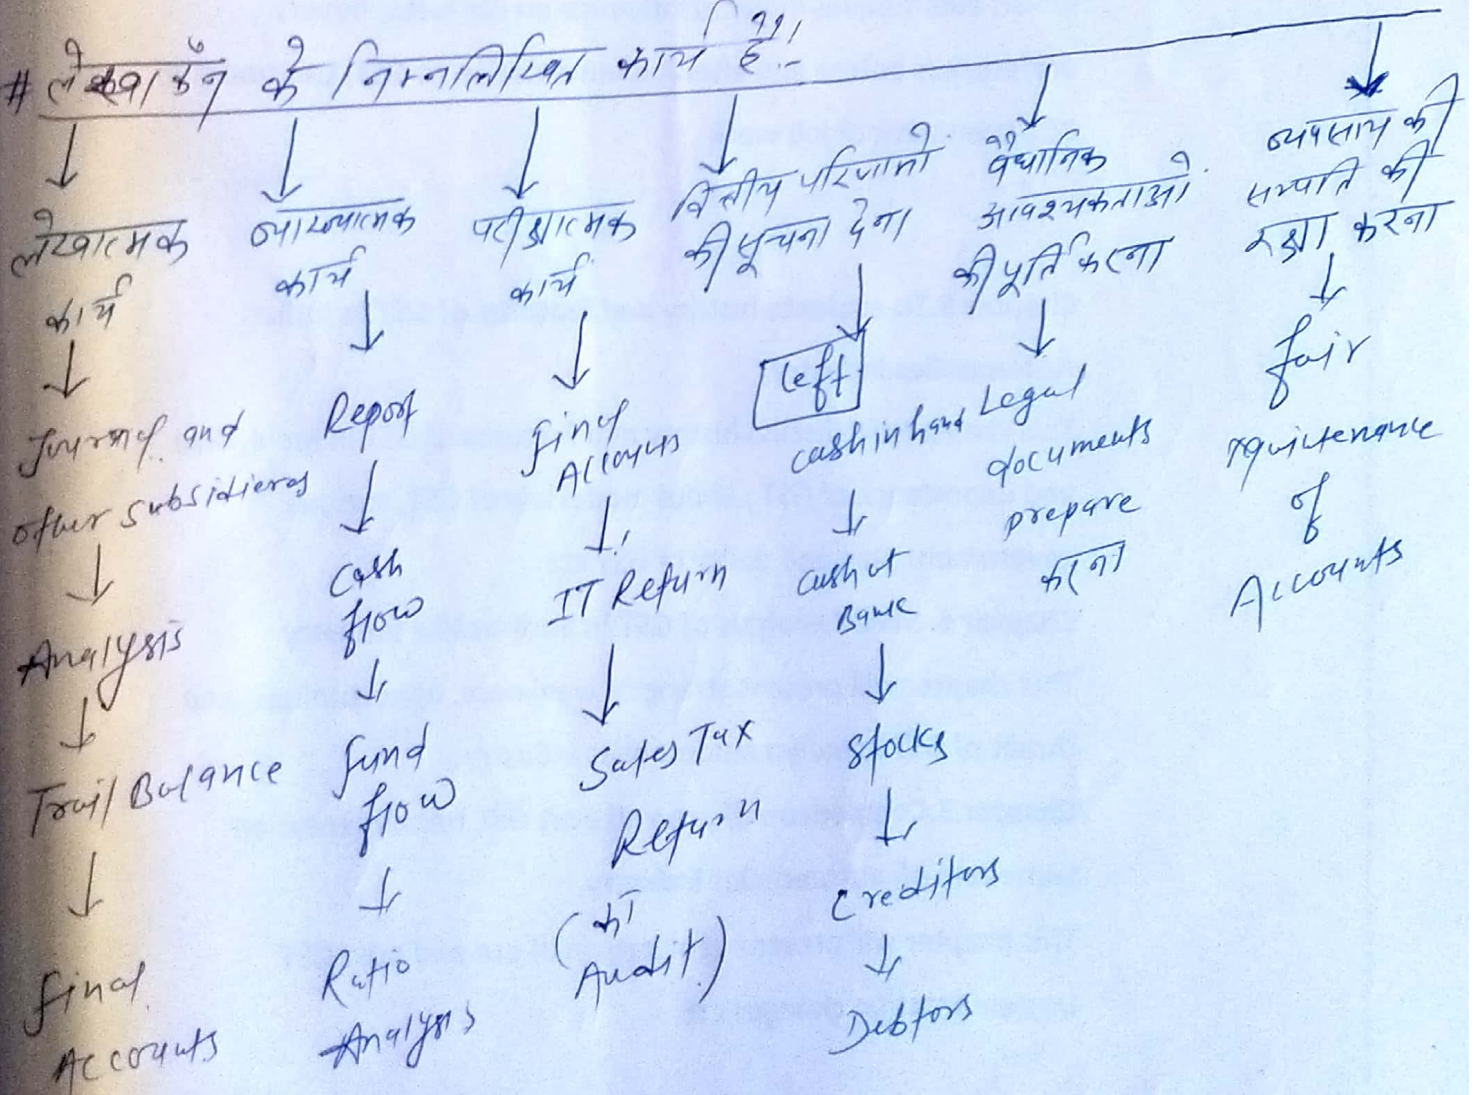 # लेखाकंन के निम्नलिखित कार्य हैं!-
लेखात्मक
कार्य
Journal and
other subsidieres
Analysis
Trail Balance
final
Accounts
व्याख्यात्मक
कार्य
Report
Cash
flow
fund
flow
Ratio
Analysis
परीक्षात्मक
कार्य
final
Accounts
IT Return
Sales Tax
Return
(का
Audit)
वित्तीय परिणामों
की सूचना देना
Left
cash in hand
cash at
Bank
Stocks
Creditors
Debtors
वैधानिक
आवश्यकताओं
की पूर्ति करना
Legal
documents
prepare
करना
व्यवसाय की
सम्पति की
रक्षा करना
fair
maintenance
of
Accounts